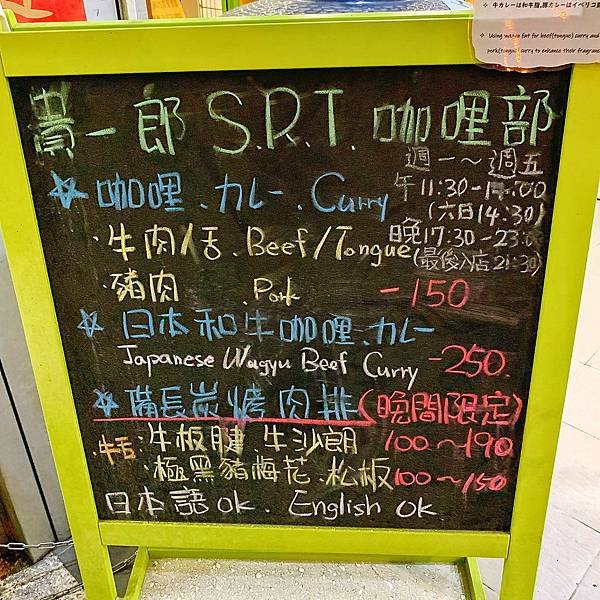 牛カレーは和牛脂,豚カレーはイベリコ
Using wagyu fat for beef(tongue) curry and
pork(tongue) curry to enhance their fragranc
貴一郎 S.R.T. 咖哩部
週一～週五
午11:30-14:00
(六日14:30)
☆咖哩.カレー.Curry
晚17:30-23:00
(最後入店21:30)
·牛肉/舌.Beef/Tongue
·豬肉 .Pork -150
☆日本和牛咖哩.カレー
Japanese Wagyu Beef Curry -250.
☆備長炭烤肉排(晚間限定)
·牛舌.牛板腱 牛沙朗 100～190
·極黑豬梅花.松板 100～150
日本語ok. English ok